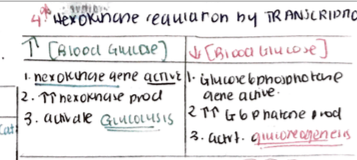 Hexokinase regulation by TRANSCRIPTIO
↑ [Blood Glucose]
↓ [Blood Glucose]
1. hexokinase gene active
2. ↑↑ hexokinase prod
3. activate Glycolysis
1. Glucose 6 phosphatase
gene active.
2 ↑↑ G6phatase prod
3. activ. gluconeogenesis